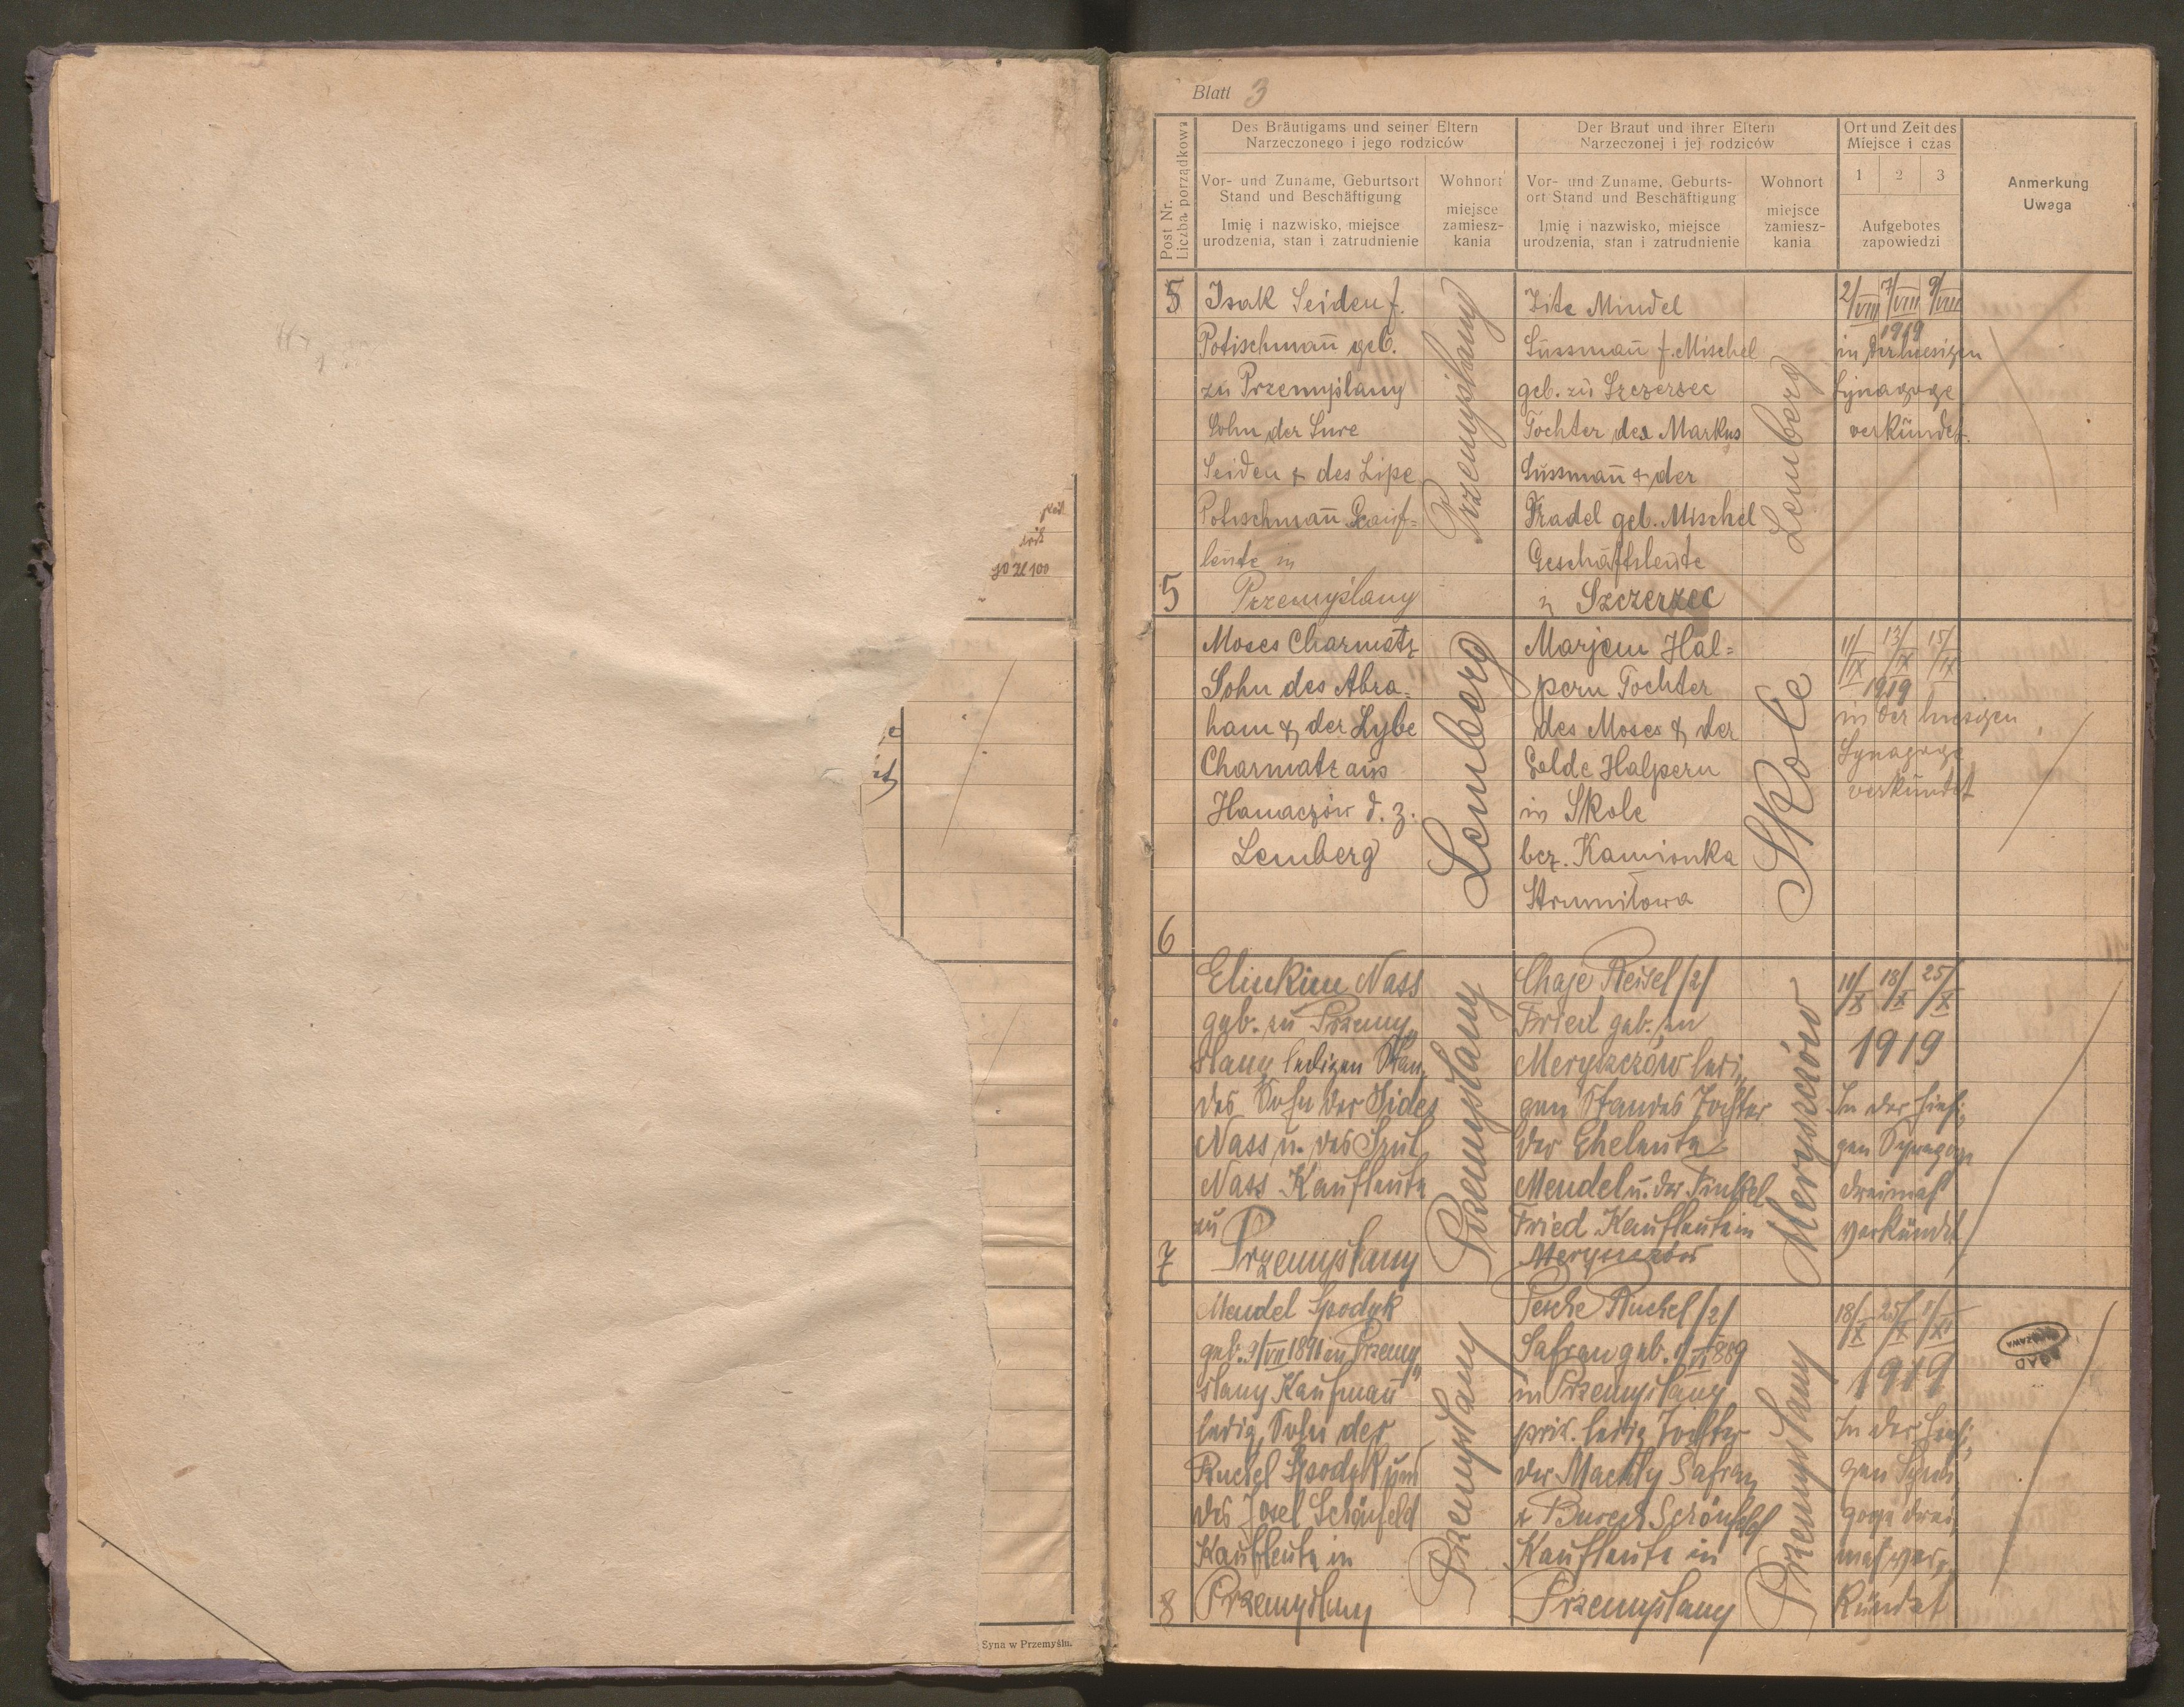 Blatt 3
Post Nr.
Liczba porządkowa
Des Bräutigams und seiner Eltern
Narzeczonego i jego rodziców
Vor- und Zuname, Geburtsort
Stand und Beschäftigung
Imię i nazwisko, miejsce
urodzenia, stan i zatrudnienie
Wohnort
miejsce
zamiesz-
kania
Der Braut und ihrer Eltern
Narzeczonej i jej rodziców
Vor- und Zuname, Geburts-
ort Stand und Beschäftigung
Imię i nazwisko, miejsce
urodzenia, stan i zatrudnienie
Wohnort
miejsce
zamiesz-
kania
Ort und Zeit des
Miejsce i czas
1 2 3
Aufgebotes
zapowiedzi
Anmerkung
Uwaga
5
Isak Seiden f.
Potischman̄ geb.
zu Przemyślany
Sohn der Sure
Seiden & des Lipe
Potischman̄ Kauf=
leute in
Przemyślany
5
Przemyślany
Zite Mindel
Süssman̄ f. Mischel
geb. zu Szczerzec
Tochter des Markus
Süssman̄ & der
Fradel geb. Mischel
Geschäftsleute
in Szczerzec
Lemberg
2/VIII 7/VIII 9/VIII
1919
in der hiesigen
Synagoge
verkündet.
Moses Charmatz
Sohn des Abra-
ham & der Lybe
Charmatz aus
Hanaczów d. z.
Lemberg
6
Lemberg
Marjem Hal=
pern Tochter
des Moses & der
Golde Halpern
in Skole
bez. Kamionka
Strumiłowa
Skole
11/IX 13/IX 15/IX
1919
in der hiesigen
Synagoge
verkündet
Eliukim Nass
geb. zu Przemy„
ślany ledigen Stan„
des Sohn der Sides
Nass u. des Srul
Nass Kaufleute
zu
Przemyślany
7
Przemyślany
Chaje Reisel /2/
Fried geb. zu
Meryszczów ledi„
gen Standes Tochter
der Eheleute
Mendel u. der Finkel
Fried Kaufleute in
Meryszczów
Meryszczów
11/X 18/X 25/X
1919
In der hiesi„
gen Synagoge
dreimal
verkündet
Mendel Spodyk
geb. 9/VII 1891 in Przemy„
ślany Kaufman̄
ledig, Sohn der
Ruchel Spodyk und
des Josel Schönfeld
Kaufleute in
Przemyślany
8
Przemyślany
Pesche Ruchel /2/
Safran geb. 1/VI 889
in Przemyślany
priv. ledig Tochter
der Machly Safran
& Burech Schönfeld
Kaufleute in
Przemyślany
Przemyślany
18/X 25/X 1/XI
1919
In der hiesi„
gen Syna„
goge drei„
mal ver„
kündet
AGAD
WARSZAWA
Syna w Przemyślu.